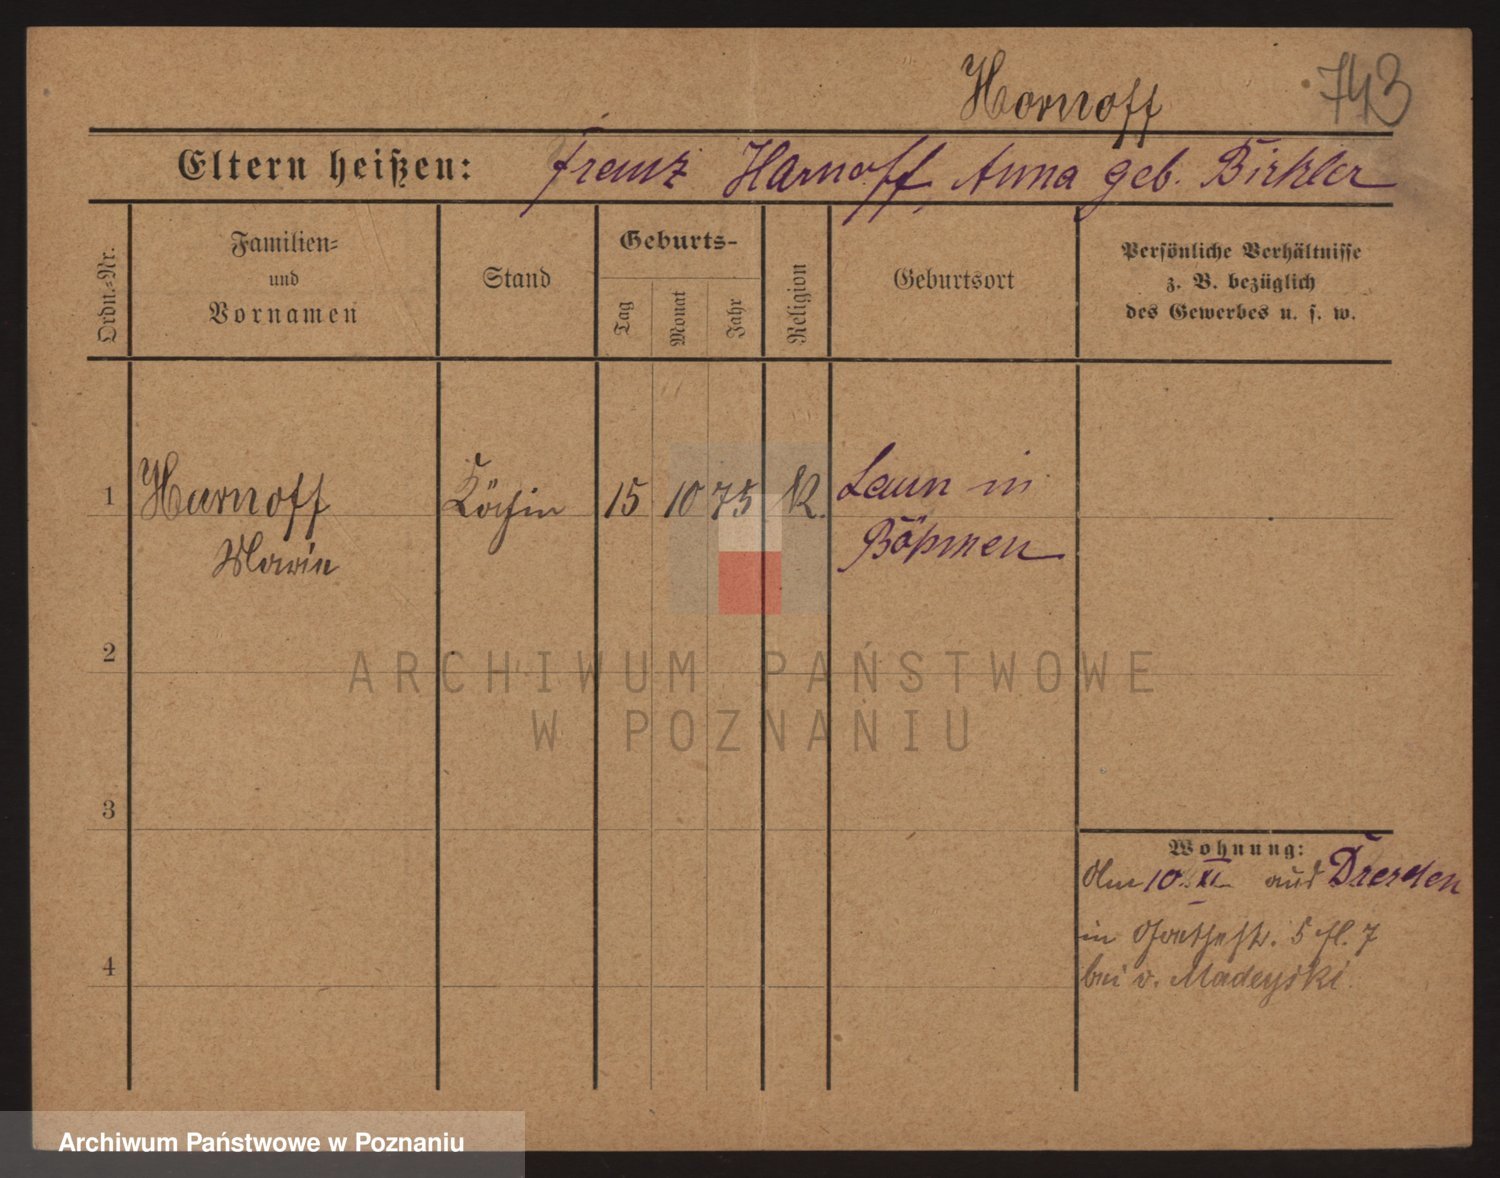 Hornoff 743
Eltern heißen: Franz Harnoff, Anna geb. Birkler
Ordn.-Nr.
Familien-
und
Vornamen
Stand
Geburts-
Tag
Monat
Jahr
Religion
Geburtsort
Persönliche Verhältnisse
z. B. bezüglich
des Gewerbes u. s. w.
1 Harnoff Köchin 15 10 75 K. Laun in
Marie Böhmen
2
ARCHIWUM PAŃSTWOWE
W POZNANIU
3
Wohnung:
Am 10. XI. aus Dresden
in 5 7
4
bei v. Madeyski.
Archiwum Państwowe w Poznaniu